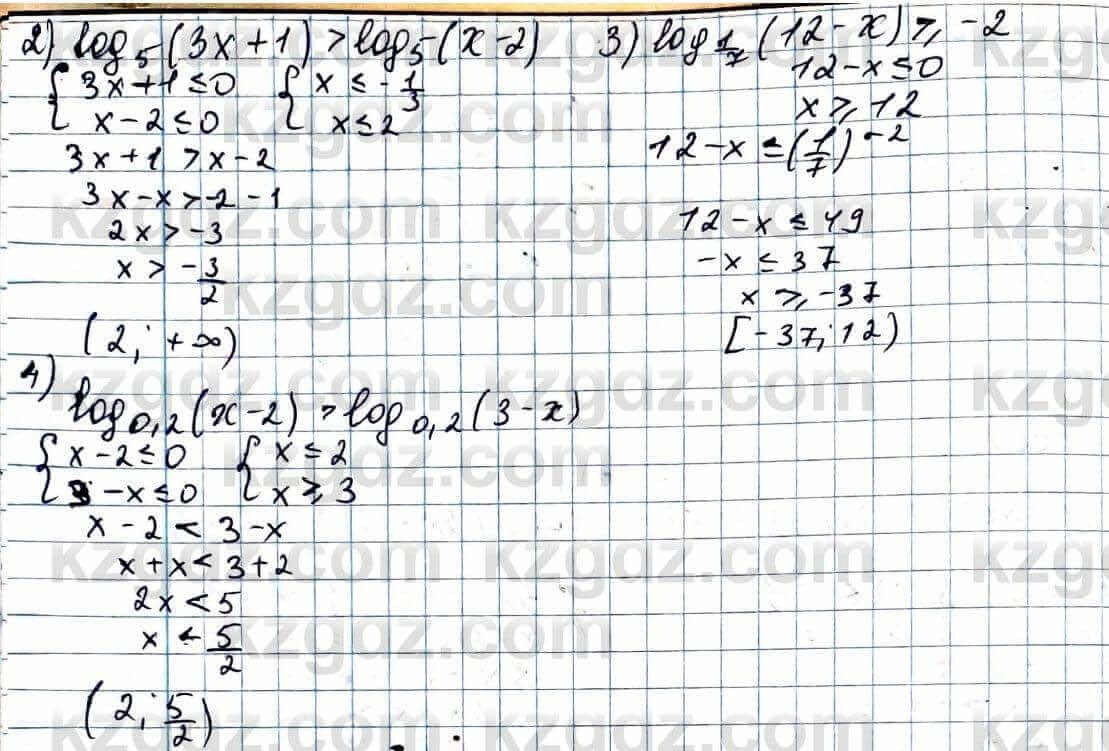 2) log₅(3x+1) > log₅(x-2)
{ 3x+1≤0 { x ≤ -1/3
x-2≤0 x≤2
3x+1 > x-2
3x-x > -2-1
2x > -3
x > -3/2
(2; +∞)
3) log 1/7 (12-x) ≥ -2
12-x≤0
x≥12
12-x ≤ (1/7)⁻²
12-x ≤ 49
-x ≤ 37
x ≥ -37
[-37; 12)
4)
log₀,₂(x-2) > log₀,₂(3-x)
{ x-2≤0 { x≤2
3-x≤0 x≥3
x-2 < 3-x
x+x < 3+2
2x < 5
x < 5/2
(2; 5/2)
kzgdz.com